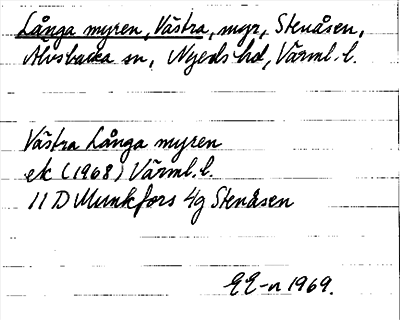 Långa myren, Västra, myr, Stenåsen,
Älvsbacka sn, Nyeds hd, Värml. l.
Västra Långa myren
ek (1968) Värml. l.
11 D Munkfors 4g Stenåsen
EE-n 1969.